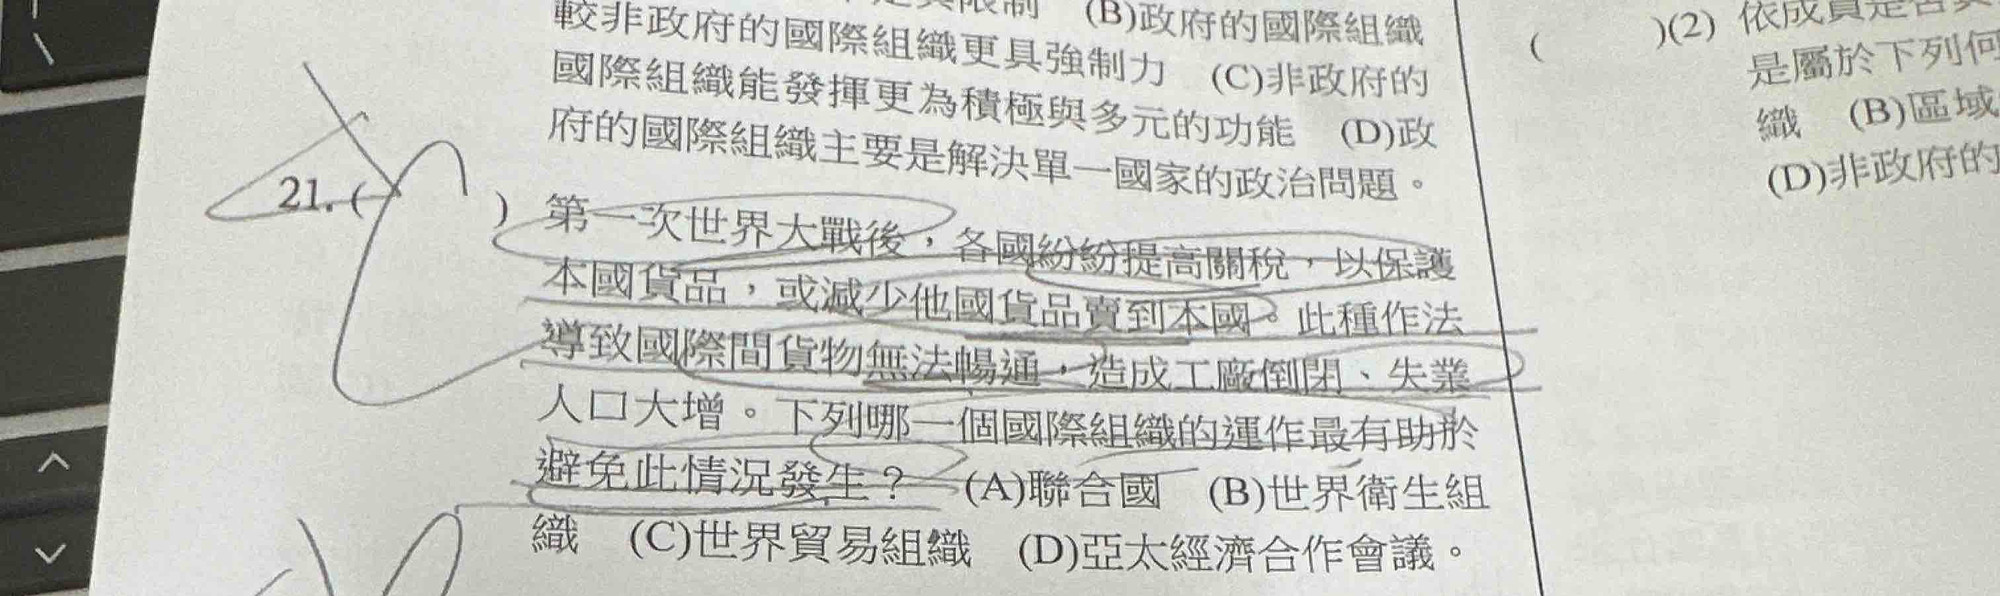 (B)政府的國際組織
較非政府的國際組織更具強制力 (C)非政府的
國際組織能發揮更為積極與多元的功能 (D)政
府的國際組織主要是解決單一國家的政治問題。
21. ( ) 第一次世界大戰後，各國紛紛提高關稅，以保護
本國貨品，或減少他國貨品賣到本國。此種作法
導致國際間貨物無法暢通，造成工廠倒閉、失業
人口大增。下列哪一個國際組織的運作最有助於
避免此情況發生？ (A)聯合國 (B)世界衛生組
織 (C)世界貿易組織 (D)亞太經濟合作會議。
( )(2) 依成員是否
是屬於下列何
織 (B)區域
(D)非政府的